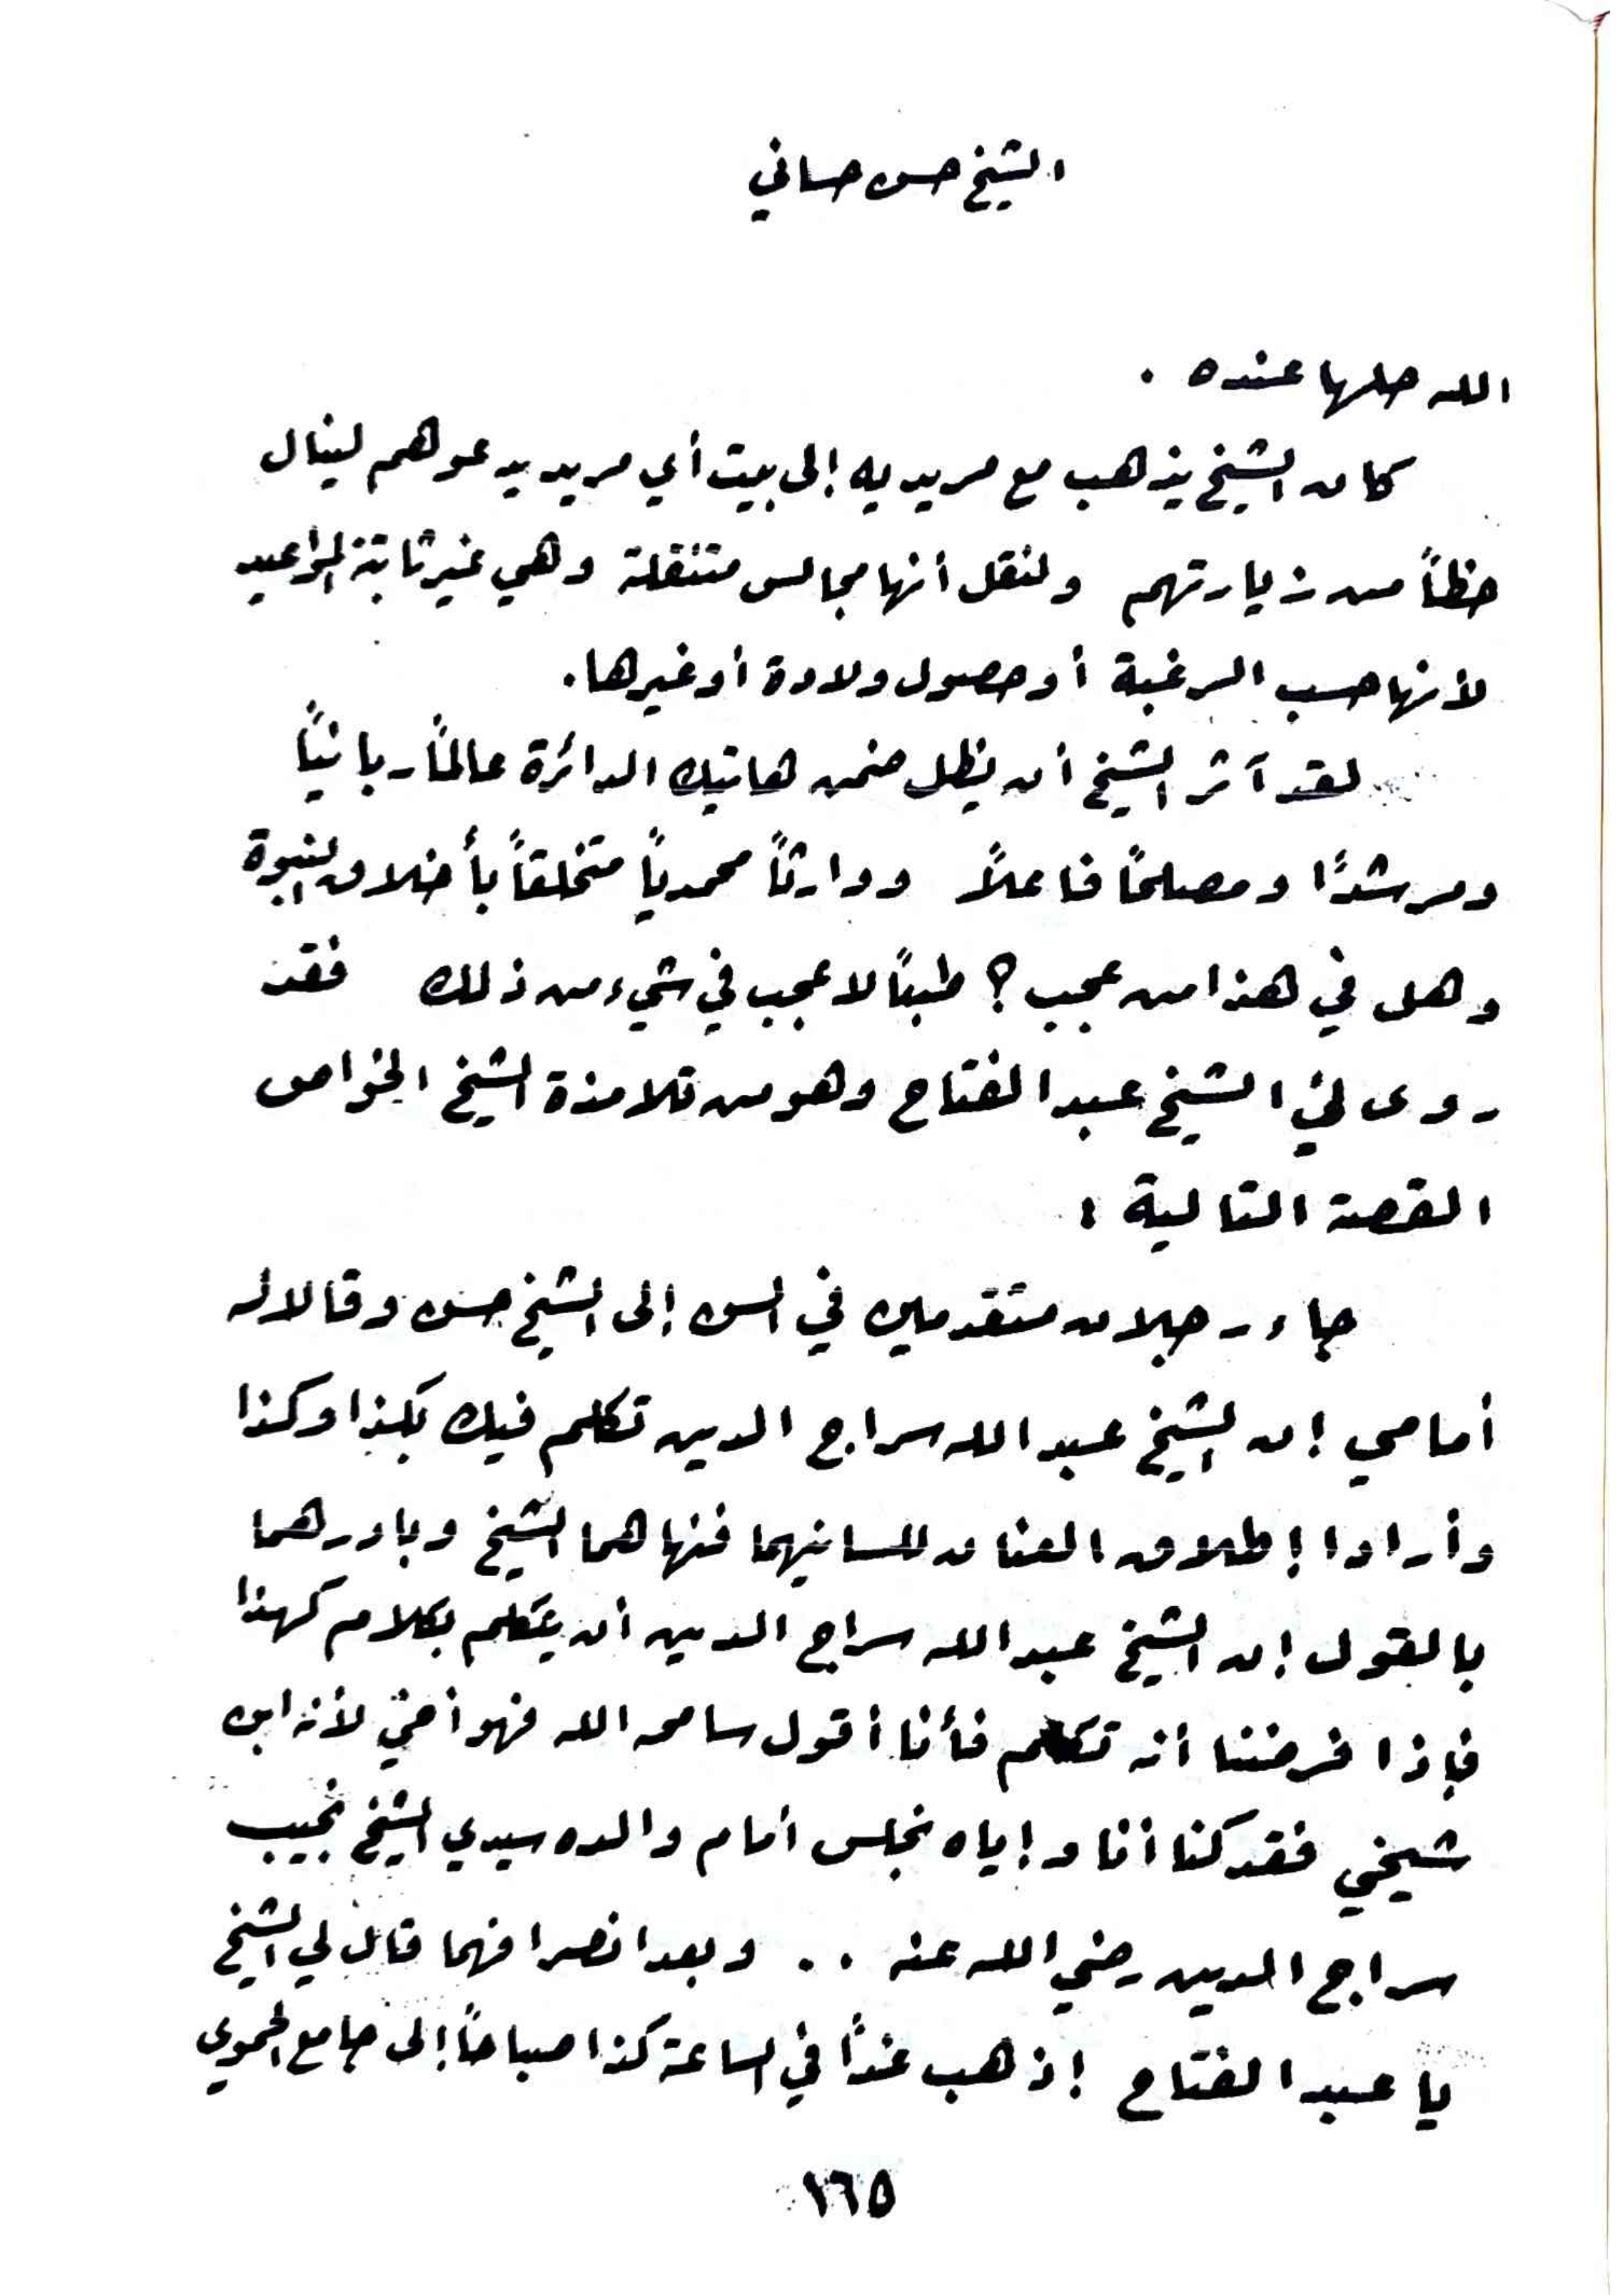 الشيخ حسن حساني
الله حلها عنده .
كان الشيخ يذهب مع مريديه إلى بيت أي مريد يدعوهم لينال
حظاً من زيارتهم ولنقل أنها مجالس متنقلة وهي غير ثابتة المواعيد
لأنها حسب الرغبة أو حصول ولادة أو غيرها .
لقد آثر الشيخ أن يظل ضمن هاتيك الدائرة عالماً ربانياً
ومرشدًا ومصلحًا فاعلاً ووارثاً محمدياً متخلقاً بأخلاق النبوة
وهل في هذا من عجب ؟ طبعًا لا عجب في شيء من ذلك فقد
روى لي الشيخ عبد الفتاح وهو من تلامذة الشيخ الخواص
القصة التالية :
جاء رجلان متقدمين في السن إلى الشيخ حسن وقالا له
أمامي إن الشيخ عبد الله سراج الدين تكلم فيك بكذا وكذا
وأرادا إطلاق العنان للسانيهما فنهاهما الشيخ وبادرهما
بالقول إن الشيخ عبد الله سراج الدين أن يتكلم بكلام كهذا
فإذا فرضنا أنه تكلم فأنا أقول سامحه الله فهو أخي لأنه ابن
شيخي فقد كنا أنا وإياه نجلس أمام والده سيدي الشيخ نجيب
سراج الدين رضي الله عنه .. وبعد انصرافهما قال لي الشيخ
يا عبد الفتاح إذهب غداً في الساعة كذا صباحاً إلى جامع الحموي
١٦٥